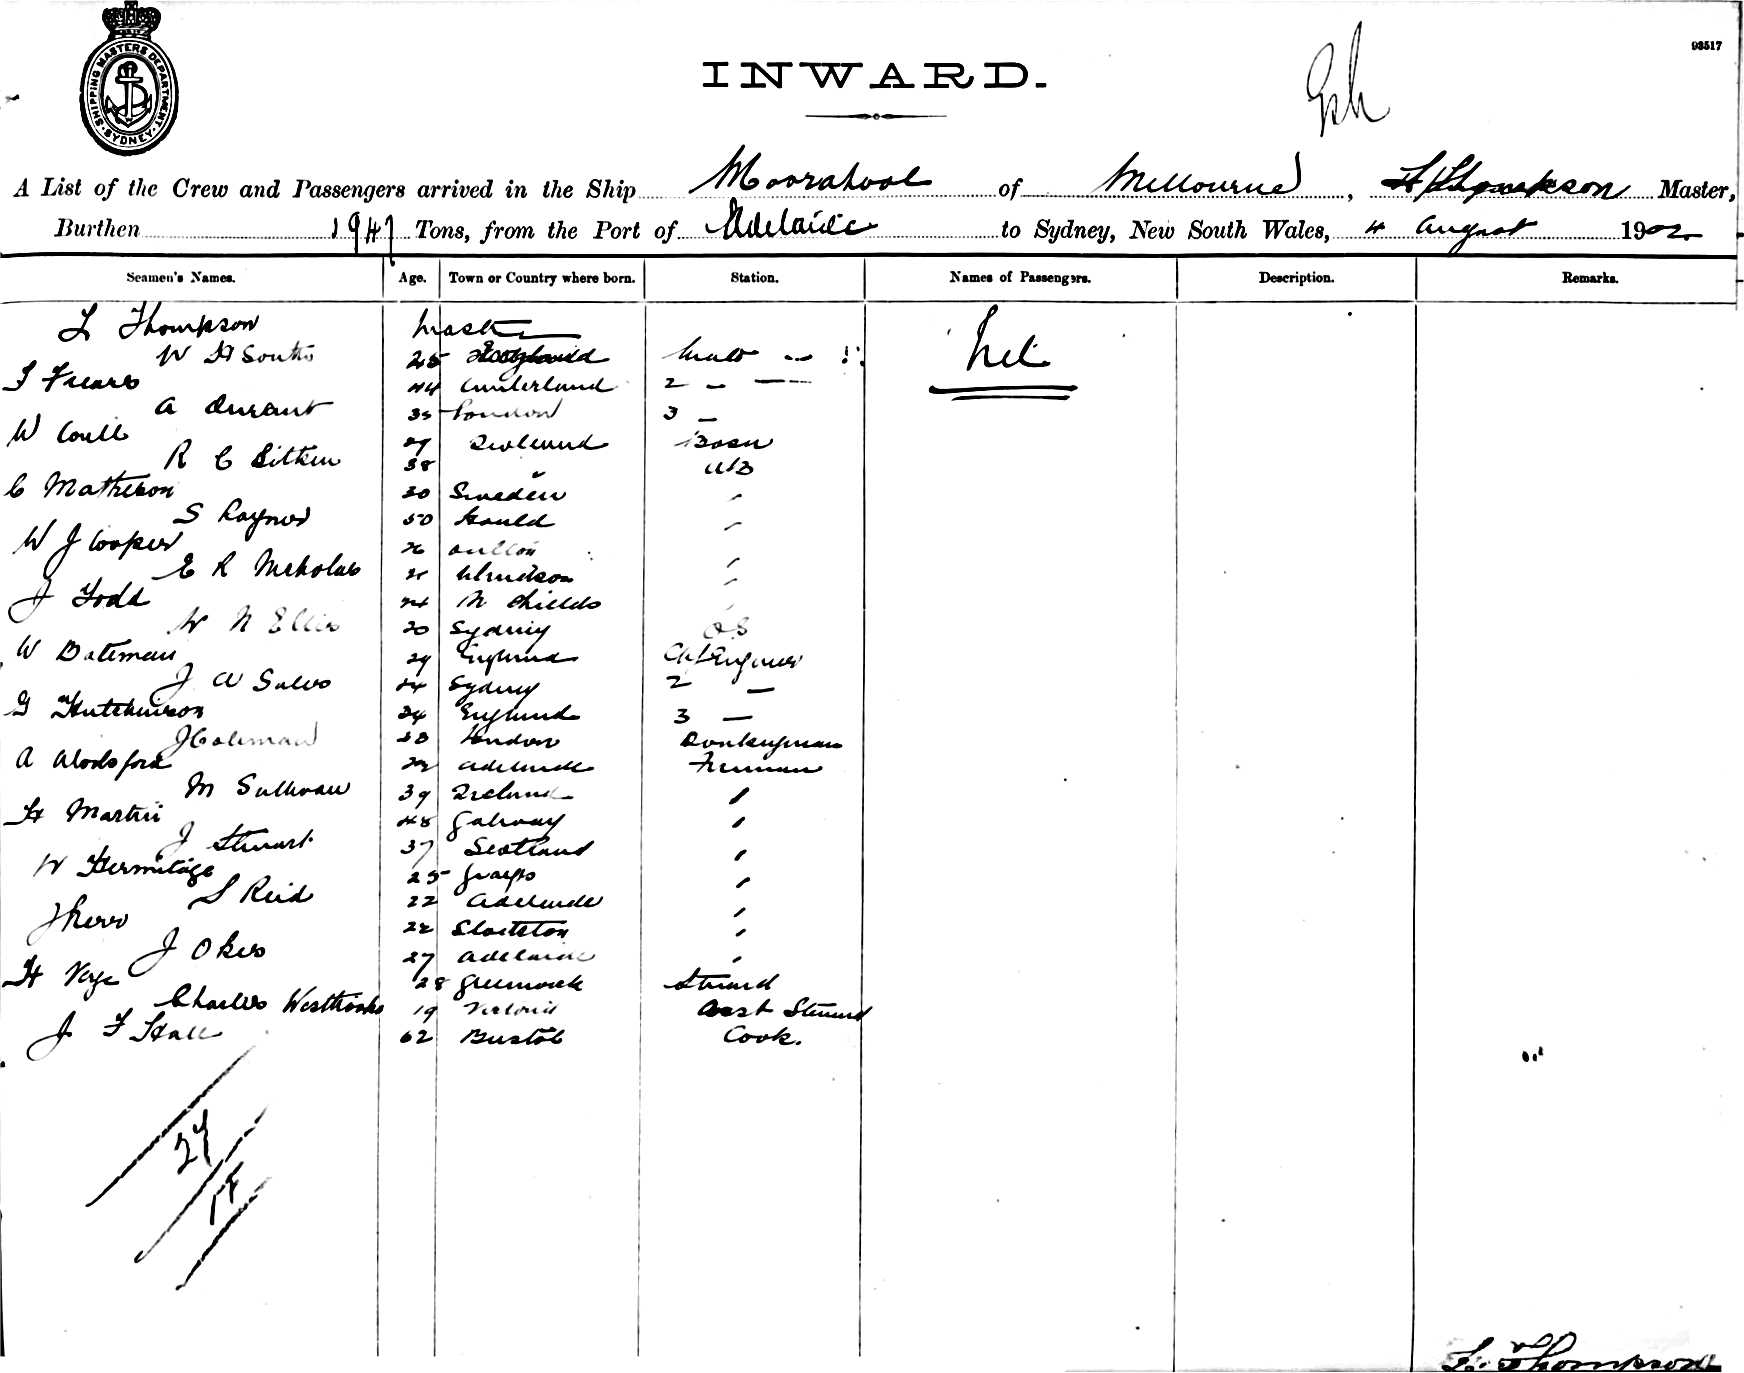 SHIPPING MASTERS DEPARTMENT. SYDNEY.
93517
INWARD.
A List of the Crew and Passengers arrived in the Ship Moorabool of Melbourne, Thompson Master,
Burthen 1947 Tons, from the Port of Adelaide to Sydney, New South Wales, 4 August 1902
Seamen's Names. Age. Town or Country where born. Station. Names of Passengers. Description. Remarks.
L Thompson Master Nil
W H South 25 England Mate
44 Sunderland 2 —
A Durant 35 London 3 —
W Coull 27 Scotland Bosn
R C Aitken 38 " AB
C Matheson 30 Sweden "
S Rayner 50 "
W J Cooper 26 "
E R Nicholas "
J Todd 24 N Shields "
W N Ellis 20 Sydney OS
W Bateman 29 England Ch Engineer
J W 24 Sydney 2 —
G Hutchinson 24 England 3 —
J Coleman 38 London Donkeyman
A 22 Adelaide Fireman
M Sullivan 39 Ireland "
H Martin 48 Galway "
J Stuart 37 Scotland "
W Hermitage 25 "
S Reid 22 Adelaide "
J Kerr 22 "
J Okes 27 Adelaide "
H 28 Greenock Steward
Charles 19 Victoria Asst Steward
J F Hall 62 Bristol Cook.
27
L. Thompson